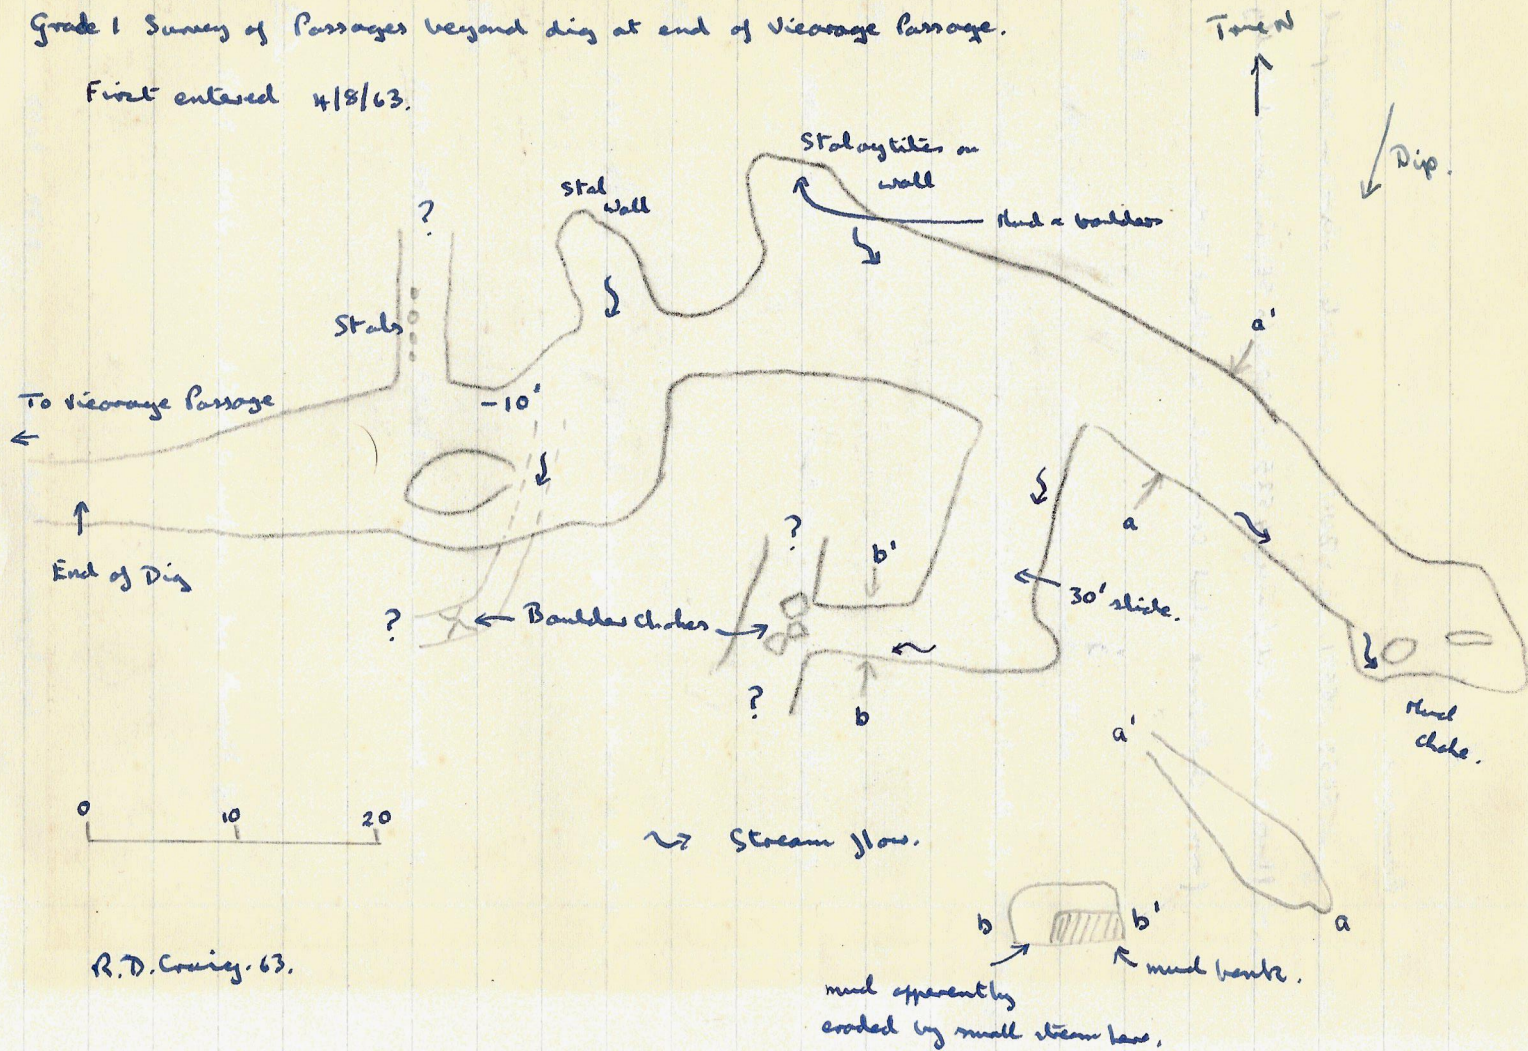 Grade 1 Survey of Passages beyond dig at end of Vicarage Passage.
True N
First entered 4/8/63.
Dip.
Stalaytities on
wall
Stal
Wall
?
Mud & boulders
Stals
a'
To Vicarage Passage
-10'
a
?
b'
End of Dig
30' slide.
?
Boulder chokes
?
b
Mud
choke.
a'
0 10 20
Stream flow.
b
b'
a
mud bank.
R.D. Craig. 63.
mud apparently
eroded by small stream here.